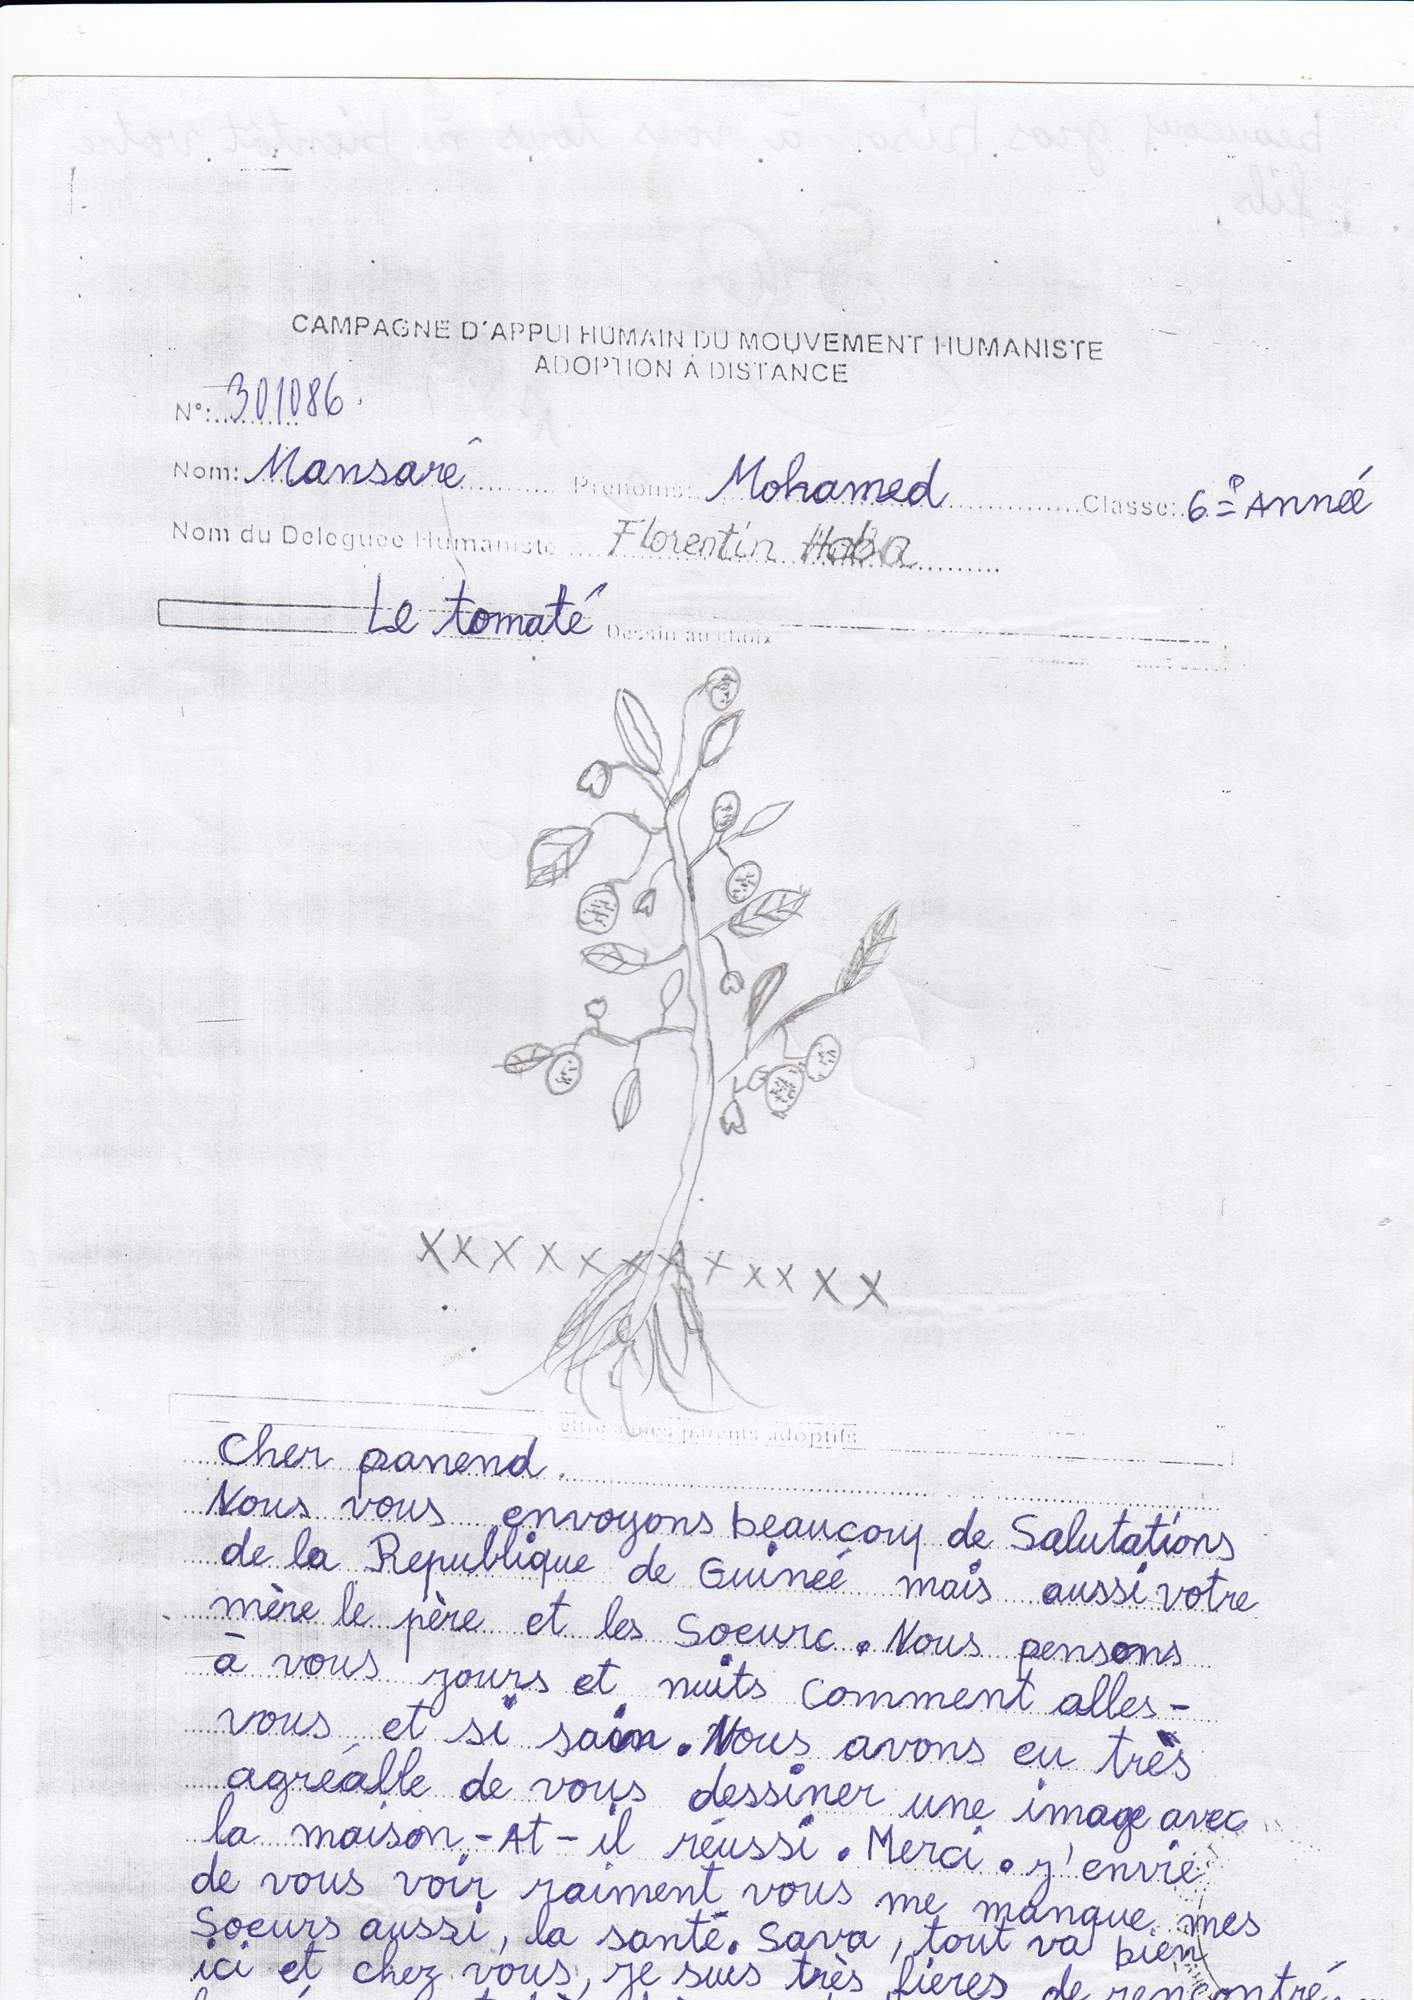 CAMPAGNE D'APPUI HUMAIN DU MOUVEMENT HUMANISTE
ADOPTION À DISTANCE
N°: 301086
Nom: Mansaré Prénoms: Mohamed Classe: 6è Année
Nom du Déléguée Humaniste Florentin Haba
Le tomaté Dessin au choix
lettre à mes parents adoptifs
Cher panend.
Nous vous envoyons beaucoup de Salutations
de la Republique de Guinéé mais aussi votre
mère le père et les Soeurc. Nous pensons
à vous jours et nuits comment alles-
vous et si sain. Nous avons eu très
agréable de vous dessiner une image avec
la maison - At - il réussi. Merci. j'envie
de vous voir raiment vous me manque mes
Soeurs aussi, la santé. Sava, tout va bien
ici et chez vous, je suis très fieres de rencontré